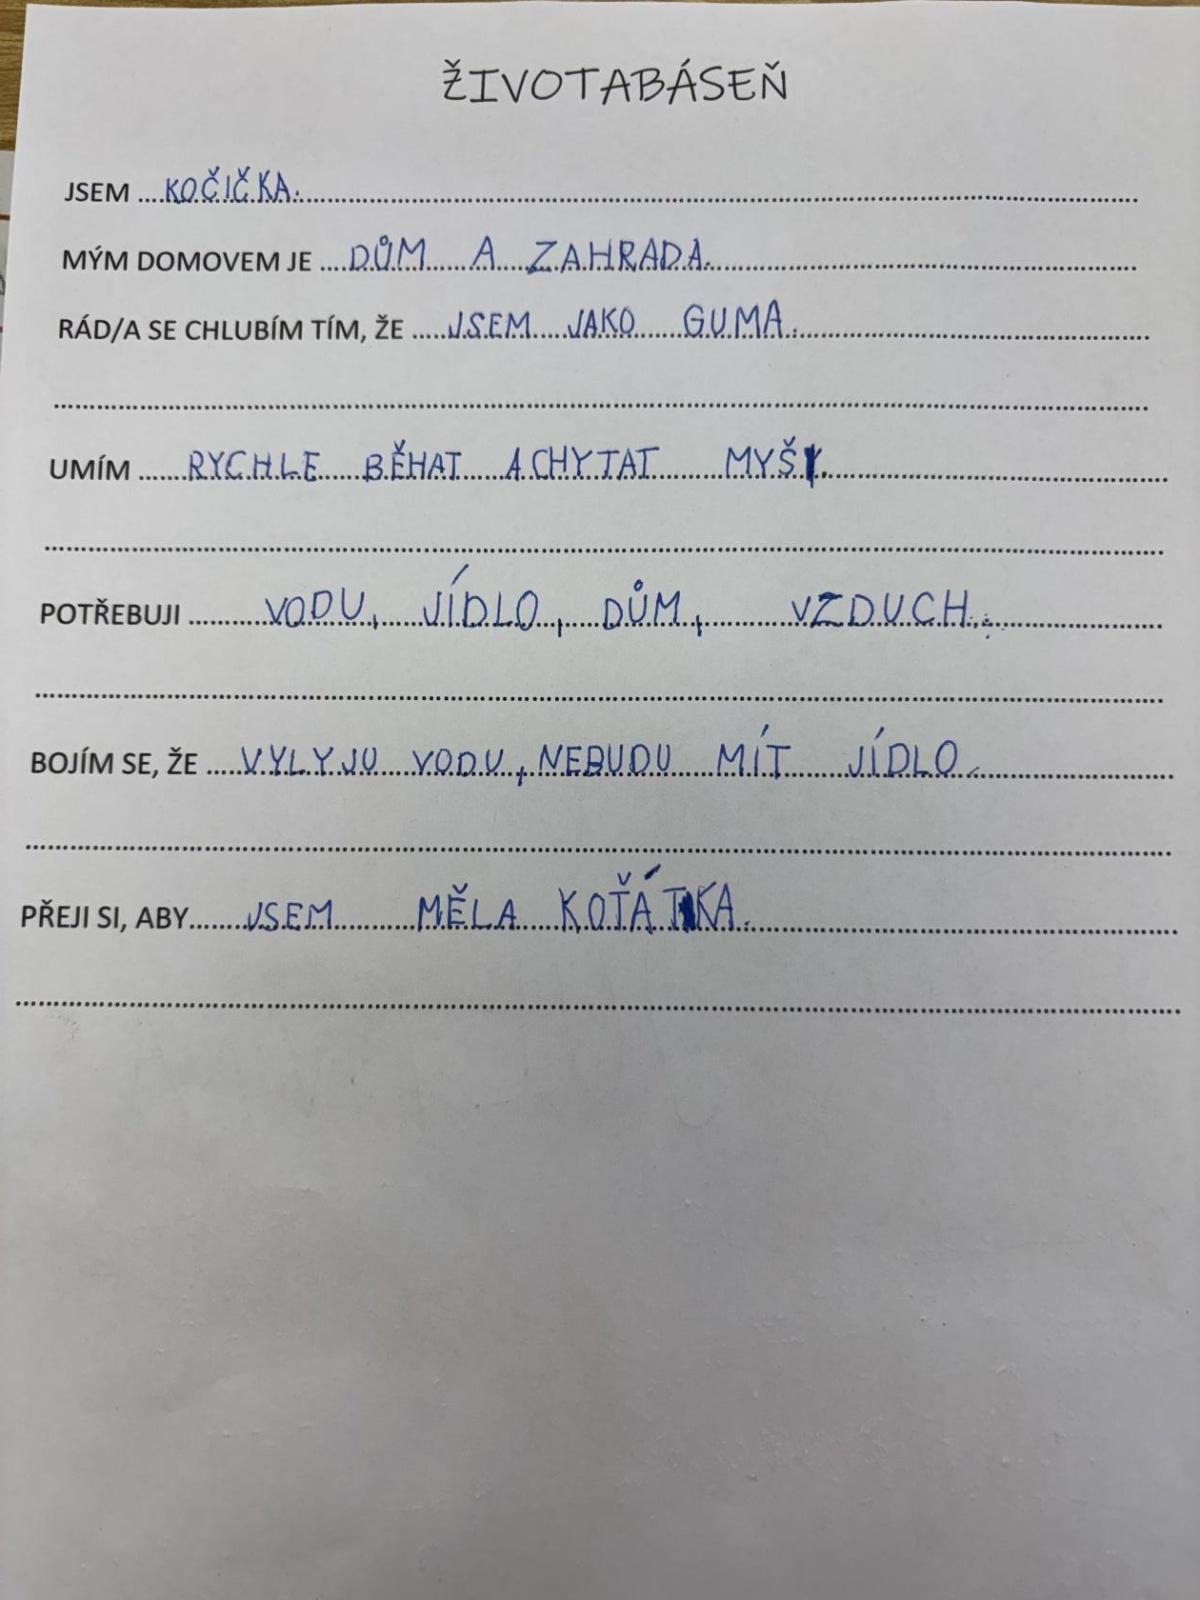 ŽIVOTABÁSEŇ
JSEM KOČIČKA.
MÝM DOMOVEM JE DŮM A ZAHRADA.
RÁD/A SE CHLUBÍM TÍM, ŽE JSEM JAKO GUMA.
UMÍM RYCHLE BĚHAT A CHYTAT MYŠI.
POTŘEBUJI VODU, JÍDLO, DŮM, VZDUCH.
BOJÍM SE, ŽE VYLYJU VODU, NEBUDU MÍT JÍDLO.
PŘEJI SI, ABY JSEM MĚLA KOŤÁTKA.